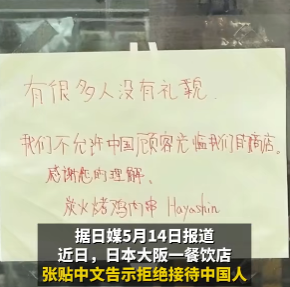 有很多人没有礼貌.
我们不允许中国顾客光临我们的商店。
感谢您的理解、
炭火烤鸡肉串 Hayashin
据日媒5月14日报道
近日，日本大阪一餐饮店
张贴中文告示拒绝接待中国人